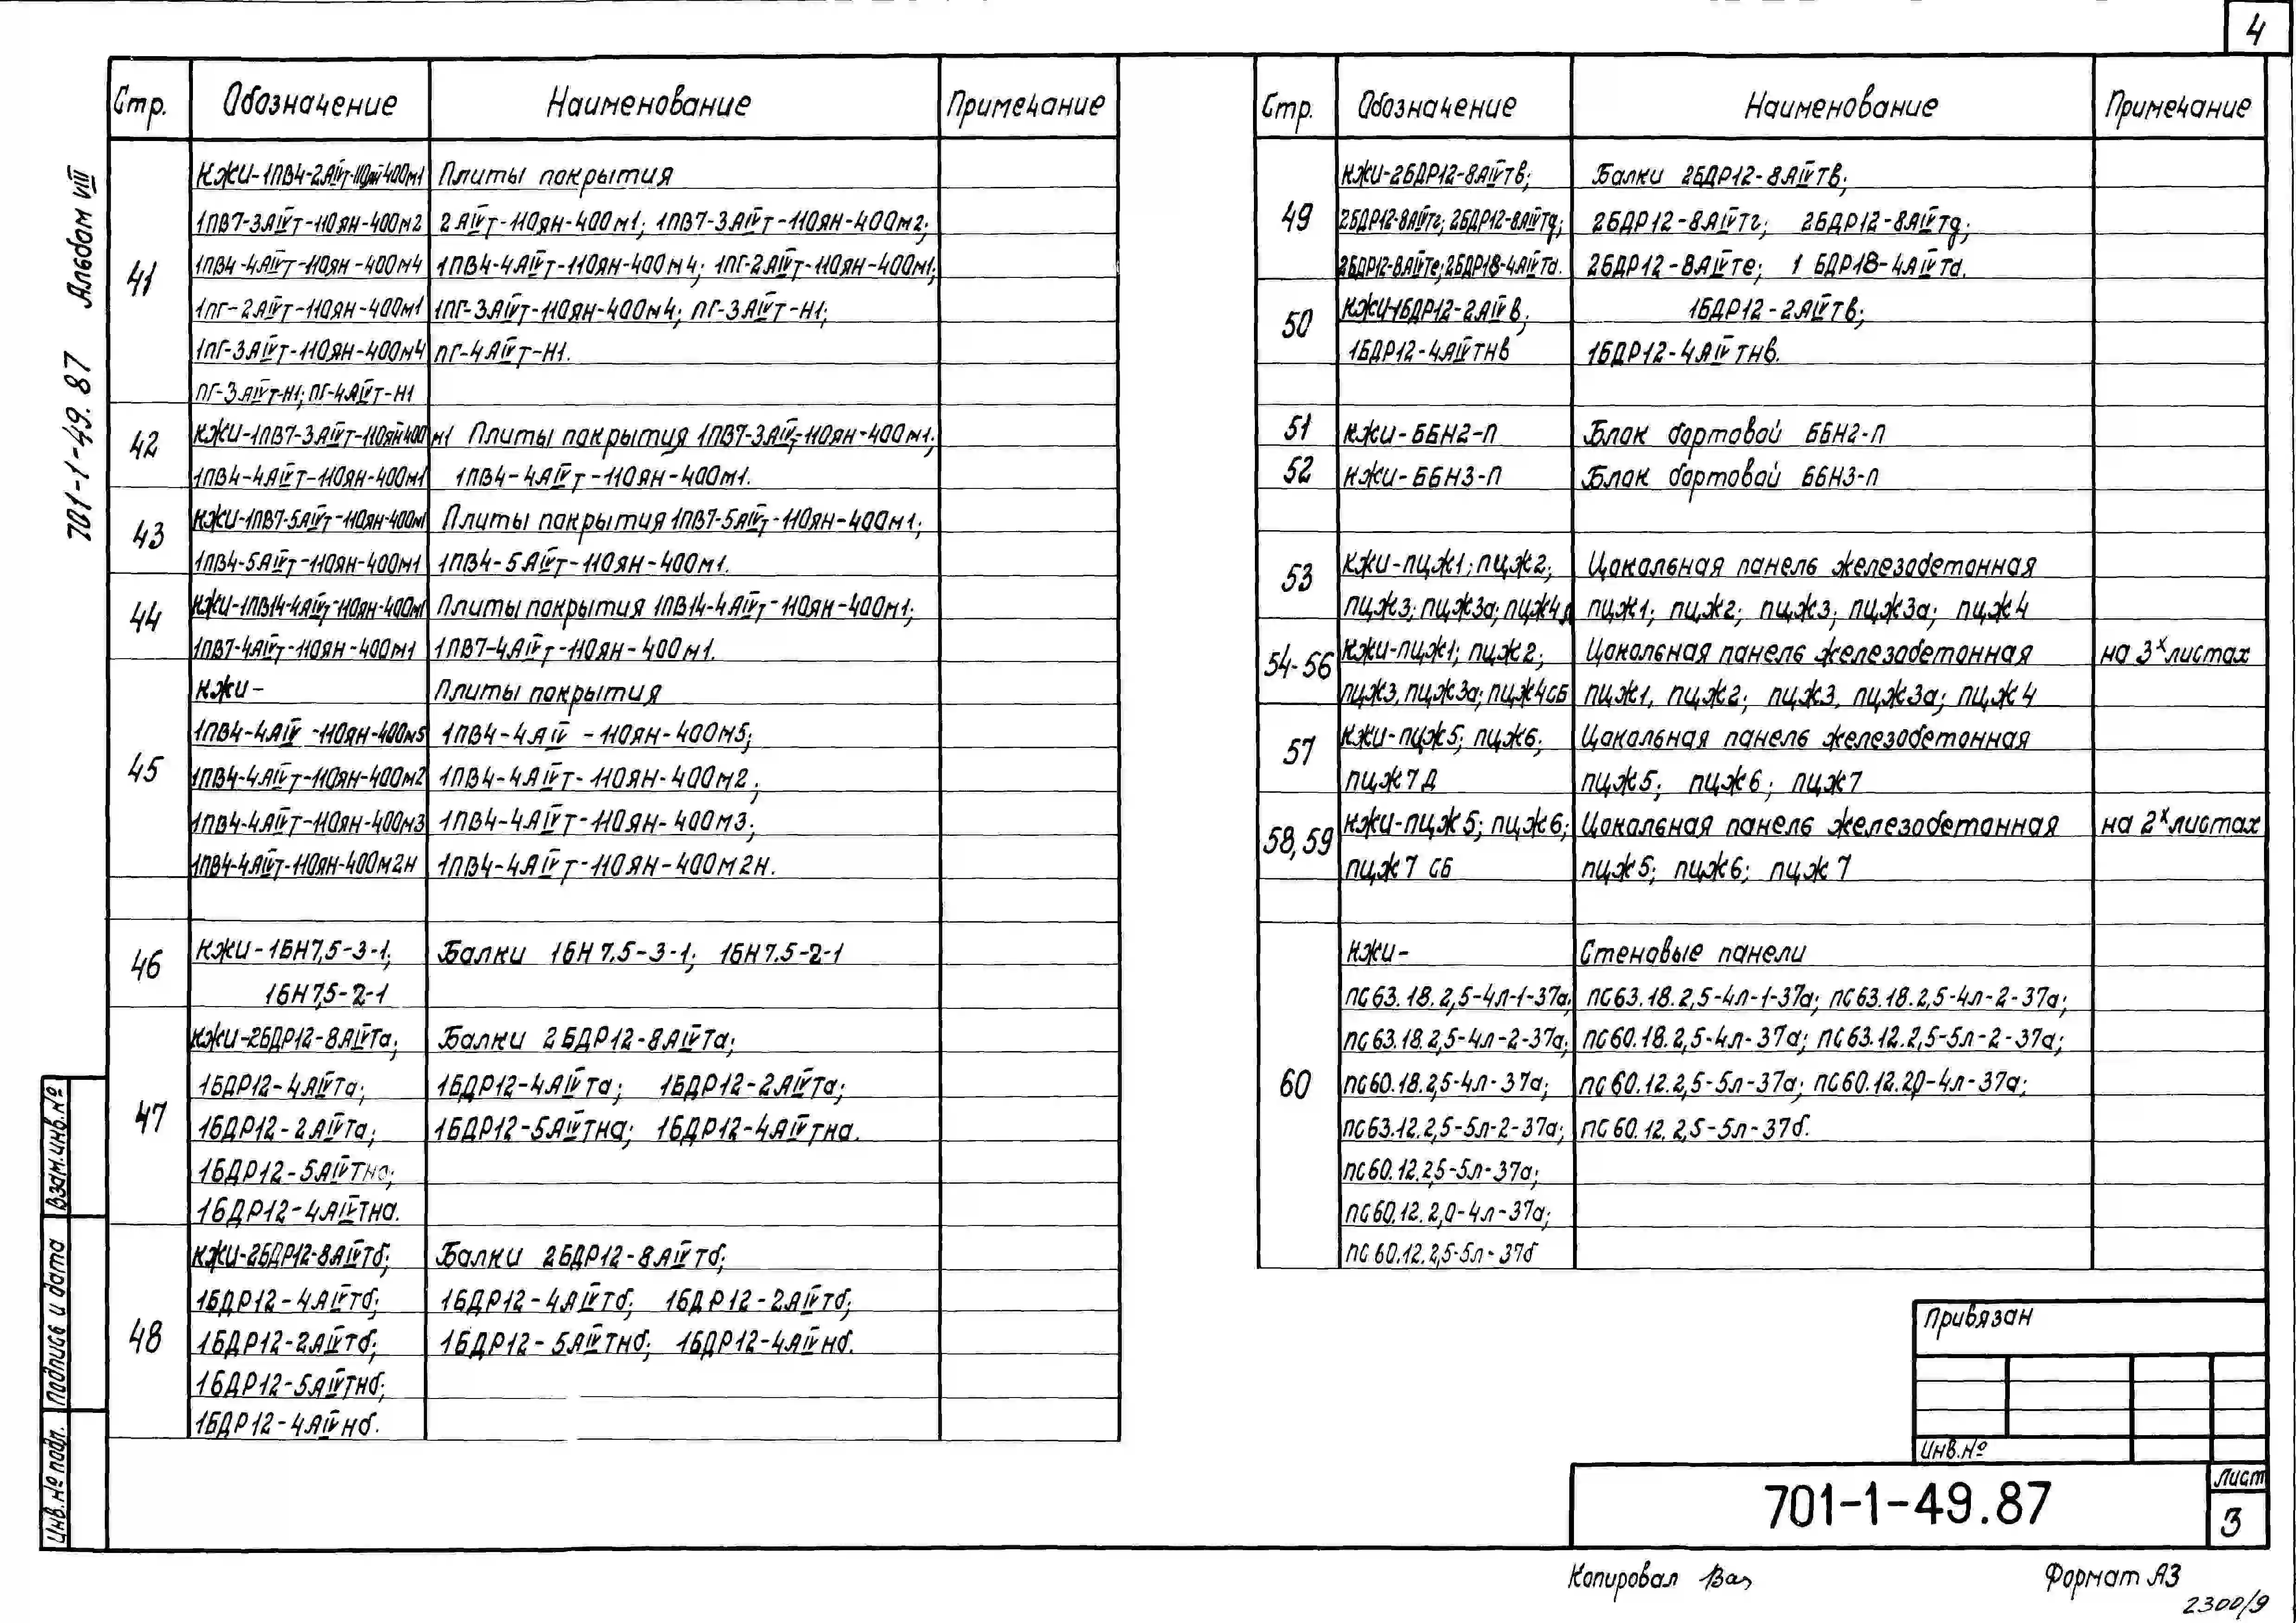 4
Стр. Обозначение Наименование Примечание
КЖИ-1ПВ4-2АIVт-110ян-400м1 Плиты покрытия
1ПВ7-3АIVт-110ян-400м2 2АIVт-110ян-400м1; 1ПВ7-3АIVт-110ян-400м2;
41 1ПВ4-4АIVт-110ян-400м4 1ПВ4-4АIVт-110ян-400м4; 1ПГ-2АIVт-110ян-400м1;
1ПГ-2АIVт-110ян-400м1 1ПГ-3АIVт-110ян-400м4; ПГ-3АIVт-Н1;
1ПГ-3АIVт-110ян-400м4 ПГ-4АIVт-Н1.
ПГ-3АIVт-Н1; ПГ-4АIVт-Н1
42 КЖИ-1ПВ7-3АIVт-110ян-400м1 Плиты покрытия 1ПВ7-3АIVт-110ян-400м1;
1ПВ4-4АIVт-110ян-400м1 1ПВ4-4АIVт-110ян-400м1.
43 КЖИ-1ПВ7-5АIVт-110ян-400м1 Плиты покрытия 1ПВ7-5АIVт-110ян-400м1;
1ПВ4-5АIVт-110ян-400м1 1ПВ4-5АIVт-110ян-400м1.
44 КЖИ-1ПВ14-4АIVт-110ян-400м1 Плиты покрытия 1ПВ14-4АIVт-110ян-400м1;
1ПВ7-4АIVт-110ян-400м1 1ПВ7-4АIVт-110ян-400м1.
КЖИ- Плиты покрытия
1ПВ4-4АIV -110ян-400м5 1ПВ4-4АIV -110ян-400м5;
45 1ПВ4-4АIVт-110ян-400м2 1ПВ4-4АIVт-110ян-400м2;
1ПВ4-4АIVт-110ян-400м3 1ПВ4-4АIVт-110ян-400м3;
1ПВ4-4АIVт-110ян-400м2н 1ПВ4-4АIVт-110ян-400м2н.
46 КЖИ-1БН7,5-3-1; Балки 1БН7.5-3-1; 1БН7.5-2-1
1БН7,5-2-1
КЖИ-2БДР12-8АIVТа; Балки 2БДР12-8АIVТа;
1БДР12-4АIVТа; 1БДР12-4АIVта; 1БДР12-2АIVта;
47 1БДР12-2АIVТа; 1БДР12-5АIVтна; 1БДР12-4АIVтна.
1БДР12-5АIVТна;
1БДР12-4АIVТна.
КЖИ-2БДР12-8АIVТб; Балки 2БДР12-8АIVТб;
1БДР12-4АIVТб; 1БДР12-4АIVТб; 1БДР12-2АIVТб;
48 1БДР12-2АIVТб; 1БДР12-5АIVТнб; 1БДР12-4АIVнб.
1БДР12-5АIVТнб;
1БДР12-4АIVнб.
Стр. Обозначение Наименование Примечание
КЖИ-2БДР12-8АIVТв; Балки 2БДР12-8АIVТв;
49 2БДР12-8АIVТг; 2БДР12-8АIVТд; 2БДР12-8АIVТг; 2БДР12-8АIVТд;
2БДР12-8АIVТе; 2БДР18-4АIVТа. 2БДР12-8АIVТе; 1 БДР18-4АIVТа.
50 КЖИ-1БДР12-2АIVв; 1БДР12-2АIVТв;
1БДР12-4АIVТНВ 1БДР12-4АIVТНВ.
51 КЖИ-ББН2-П Блок бортовой ББН2-П
52 КЖИ-ББН3-П Блок бортовой ББН3-П
53 КЖИ-пцж1; пцж2; Цокольная панель железобетонная
пцж3; пцж3а; пцж4Д пцж1; пцж2; пцж3; пцж3а; пцж4
54-56 КЖИ-пцж1; пцж2; Цокольная панель железобетонная на 3х листах
пцж3, пцж3а; пцж4СБ пцж1, пцж2; пцж3, пцж3а; пцж4
57 КЖИ-пцж5; пцж6; Цокольная панель железобетонная
пцж7 Д пцж5; пцж6; пцж7
58,59 КЖИ-пцж5; пцж6; Цокольная панель железобетонная на 2х листах
пцж7 СБ пцж5; пцж6; пцж7
КЖИ- Стеновые панели
ПС63.18.2,5-4л-1-37а; ПС63.18.2,5-4л-1-37а; ПС63.18.2,5-4л-2-37а;
ПС63.18.2,5-4л-2-37а; ПС60.18.2,5-4л-37а; ПС63.12.2,5-5л-2-37а;
60 ПС60.18.2,5-4л-37а; ПС60.12.2,5-5л-37а; ПС60.12.2,0-4л-37а;
ПС63.12.2,5-5л-2-37а; ПС60.12.2,5-5л-37б.
ПС60.12.2,5-5л-37а;
ПС60.12.2,0-4л-37а;
ПС60.12.2,5-5л-37б
Привязан
Инв.№
701-1-49.87
Лист
3
Копировал
Формат А3
2300/9
701-1-49.87 Альбом VIII
Взам.инв.№
Подпись и дата
Инв.№ подл.